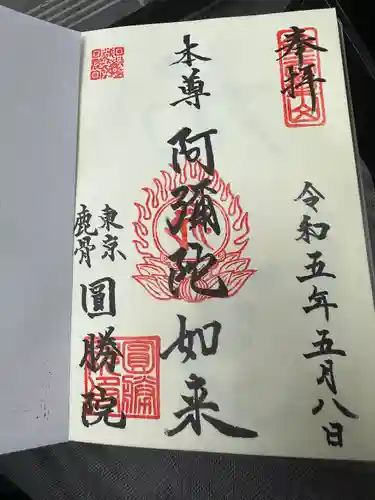 奉拝
令和五年五月八日
本尊
阿彌陀如来
東京
鹿骨
圓勝院